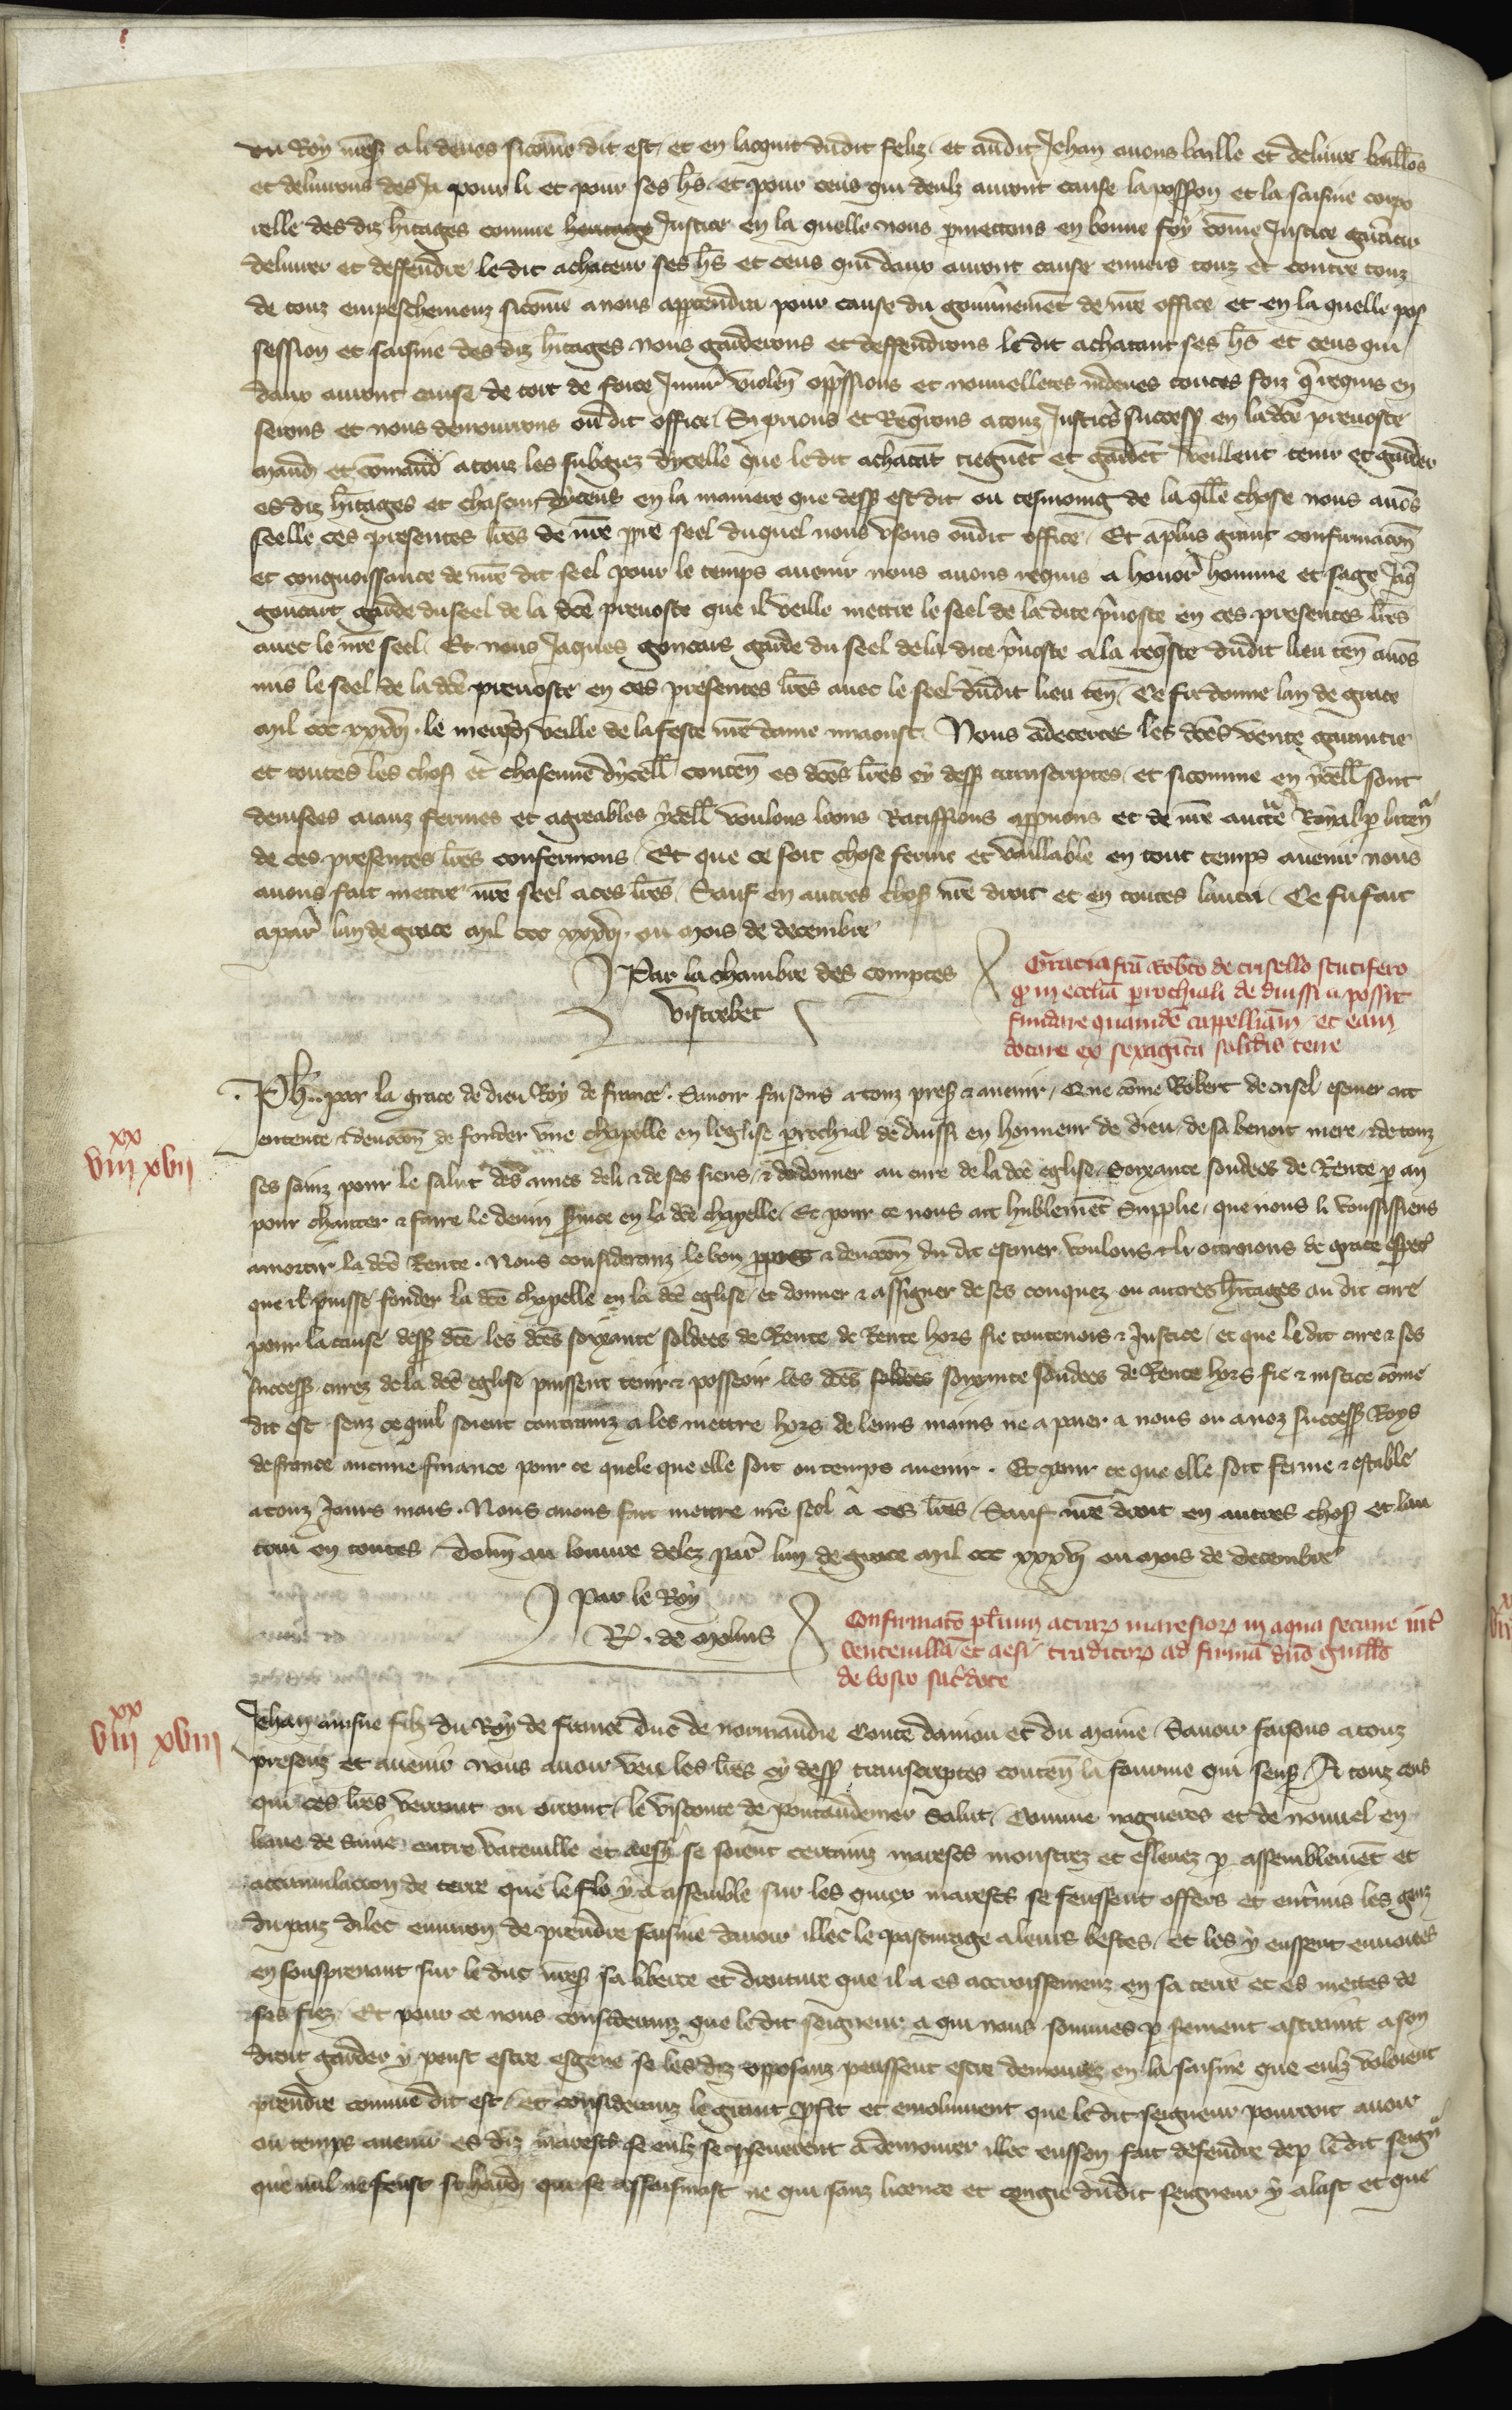 du Roy mess̃ a li deues sicõme dit est / et en lacquit dudit feliz / et audit Jehan auons baillé et deliure baillõs
et deliurons des Ja pour li et pour ses hs̃ / et pour ceus qui deulz auront cause la possõn et la saisine corpo
relle des diz hitages comme heritage Justice en la quelle nous pmettons en bonne foy cõme Justice garãtir
deliurer et deffendre le dit achateur ses hs̃ et ceus qui dauz auront cause enuers touz et contre touz
de touz empeschemenz sicõme a nous apptendra pour cause du gouũnement de nr̃e office et en la quelle pos
session et saisine des diz hitages nous garderons et deffendrons le dit achatant ses hs̃ et ceus qui
dauz auront cause de tort de force Iniur̃ violen̄ opp̃ssions et nouuelletes indeues toutes foiz q̃ requis en
serons et nous demourrons oudit office / Si prions et Req̃rons a touz Justic̃ success̃ en la dc̃e preuoste
mand̃ et cõmand̃ a touz les subgiez dycelle que le dit achatãt tiegnẽt et gardẽt vueillent tenir et garder
es diz hitages et chascun dyceus en la maniere que dess̃ est dit ou tesmoing de la qll̃e chose nous auõs
seelle ces presentes lr̃es de nr̃e ppre seel duquel nous vsons oudit office / Et a plus grant confirmacõn
et congnoissance de nr̃e dit seel pour le temps auenir nous auons requis a honor̃ homme et sage Jaq̃
goncart garde du seel de la dc̃e preuoste que il veille mettre le seel de la dite p̃uoste en ces presentes lr̃es
auec le nr̃e seel / Et nous Jaques goncars garde du seel de la dite p̃uoste a la req̃ste dudit lieu ten̄ auõs
mis le seel de la dc̃e preuoste en ces presentes lr̃es auec le seel dudit lieu ten̄ / Ce fu donne lan de grace
mil ccc xxxvj. le merq̃di veille de la feste nr̃e dame miaoust / Nous adecertes les dc̃es vente garantie
et toutes les chos̃ et chascune dycell̃ conten̄ es dc̃es lr̃es cy dess̃ transcriptes / et sicomme en ycell̃ sont
deuisees aianz fermes et agreables ycell̃ voulons loons Ratiffions appuons et de nr̃e auctẽ Royal p la ten̄
de ces presentes lr̃es confermons / Et que ce soit chose ferme et vaillable en tout temps auenir nous
auons fait mettre nr̃e seel a ces lr̃es / Sauf en autres chos̃ nr̃e droit et en toutes lautrui / Ce fu fait
a par̃ lan de grace mil ccc xxxvj. ou mois de decembre
Par la chambre des comptes
Vistrebec
Gracia fc̃a Robt̃o de crisello scutifero
q̃ in ecclia p̃rochiali de duissi a possit
fundare quamdẽ cappellãiam / et eam
dotare ex sexagĩta solidis terre
Ph̃. par la grace de dieu Roy de france. Sauoir faisons a touz pres̃ & auenir / Que cõme Robert de crisel escuier ait
entente & deuocõn de fonder vne chapelle en leglise p̃rochial de duissi en honneur de dieu / de sa benoit mere / & de touz
ses sainz pour le salut des ames de li & de ses siens / & de donner au cure de la dc̃e eglise / Soixante soudees de Rente p an
pour chanter & faire le deuin s̃uice en la dc̃e chapelle / Et pour ce nous ait hũblemẽt Supplie / que nous li voussissiens
amortir la dc̃e Rente. Nous consideranz le bon ppos & deuocõn du dit escuier voulons & li octroions de grace esp̃ec̃
que il puisse fonder la dc̃e chapelle en la dc̃e eglise / et donner & assigner de ses conquez ou autres hitages au dit cure
pour la cause dess̃ dc̃e / les dc̃es soixante soldees de Rente de Rente hors fie toutenois & Justice / et que le dit cure & ses
success̃ curez de la dc̃e eglise puissent tenir & posseoir les dc̃es soldees soixante soudees de Rente hors fie & iustice cõme
dit est / senz ce quil soient contrainz a les mettre hors de leurs mains ne a paier a nous ou a noz success̃ Roys
de france aucune finance pour ce quele que elle soit ou temps auenir. Et pour ce que elle soit ferme & estable
a touz Jours mais. Nous auons fait mettre nr̃e seel a ces lr̃es / Sauf nr̃e droit en autres chos̃ et lau
trui en toutes / Donn̄ au louure delez par̃ lan de grace mil ccc xxxvj ou mois de decembre
Par le Roy
R. de Molins
Confirmatõ pl̃ium acrar̃ maresior̃ in aqua secane int̃
ventevillã et aesi / traditor̃ ad firmã dño guill̃o
de bosco sac̃dote
viii xx xvii
viii xx xviii
Jehan ainsne filz du Roy de france duc de normandie Conte daniou et du maine / Sauoir faisons a touz
presenz et auenir nous auoir veu les lr̃es cy dess̃ transcriptes conten̄ la fourme qui sensp̃ / A touz ceus
qui ces lr̃es verront ou orront / le viconte de pontaudemer Salut / Comme nagueres et de nouuel en
liaue de Saine entre vateuille et aesy se soient certains mareses monstrez et esleuez p assemblemẽt et
accumulacion de terre que le flo y a assemble sur les quiex marescs se feussent offers et entremis les genz
du paiz dilec enuiron de prendre saisine dauoir illec le pasturage a leurs bestes / et les y eussent enuoiees
en sousprenant sur le duc nr̃es̃ sa liberte et droiture que il a es accroissemenz en sa terre et es mettes de
ses fiez / Et pour ce nous consideranz que le dit seigneur a qui nous sommes p serment astraint a son
droit garder y peust estre esgene se les diz opposanz peussent estre demourez en la saisine que eulz voloient
prendre comme dit est / et consideranz le grant pfit et emolument que le dit seigneur pourroit auoir
ou temps auenir es diz marescs se eulz se pseuerent a demourer illec eussen fait defendre dep le dit seign̄
que nul ne feust si hardi que se assaisinast ne qui sanz licence et congie dudit seigneur y alast et que